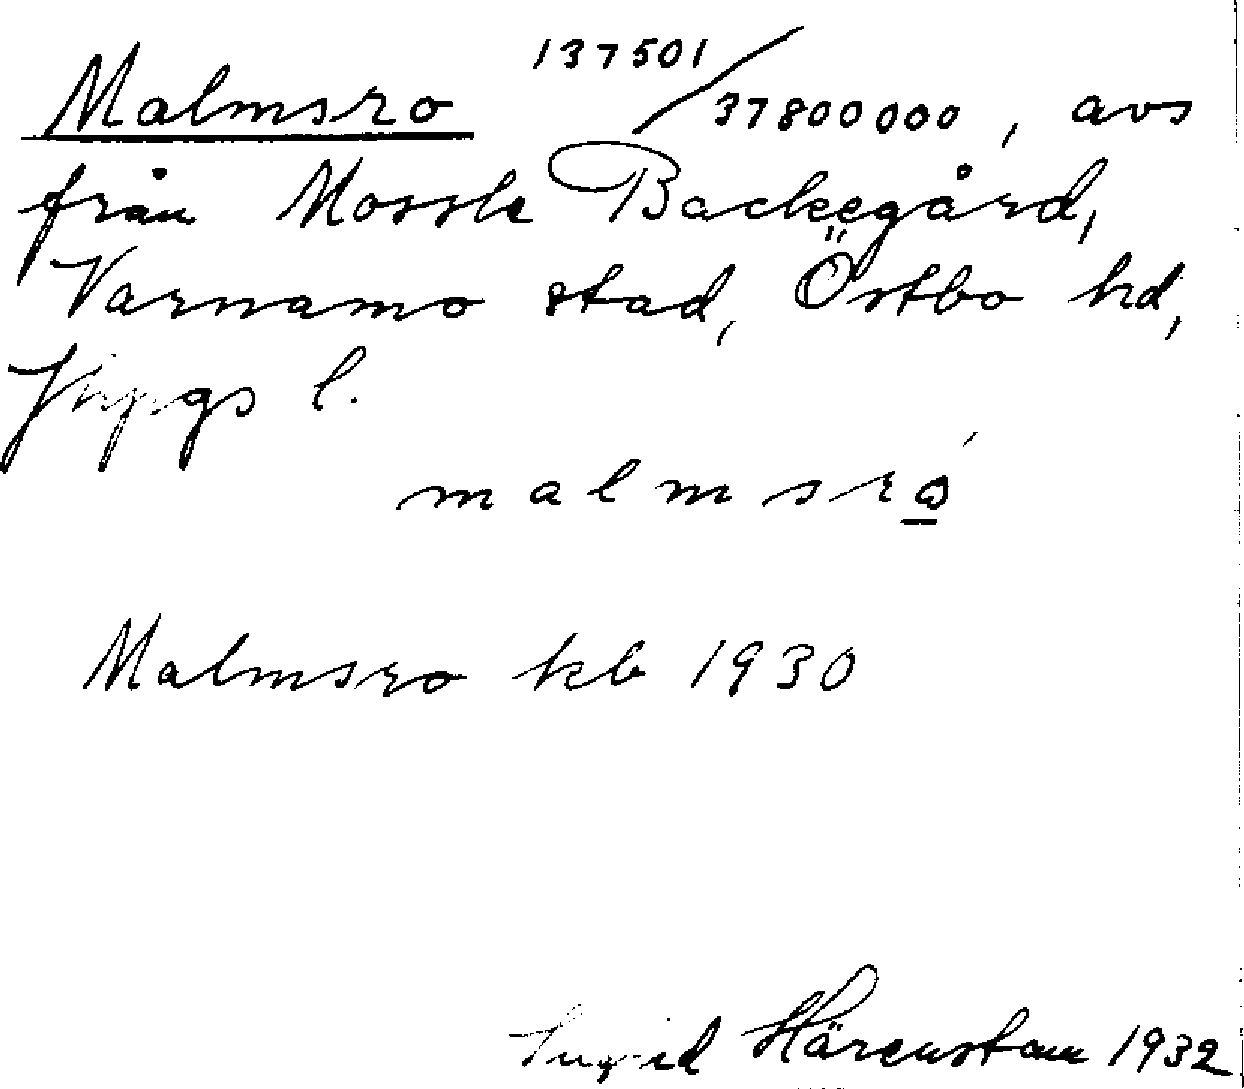 Malmsro 137501/37800000, avs
från Mossle Backegård,
Värnamo stad, Östbo hd,
Jkpgs l.
malmsró
Malmsro kb 1930
Ingrid Härenstam 1932